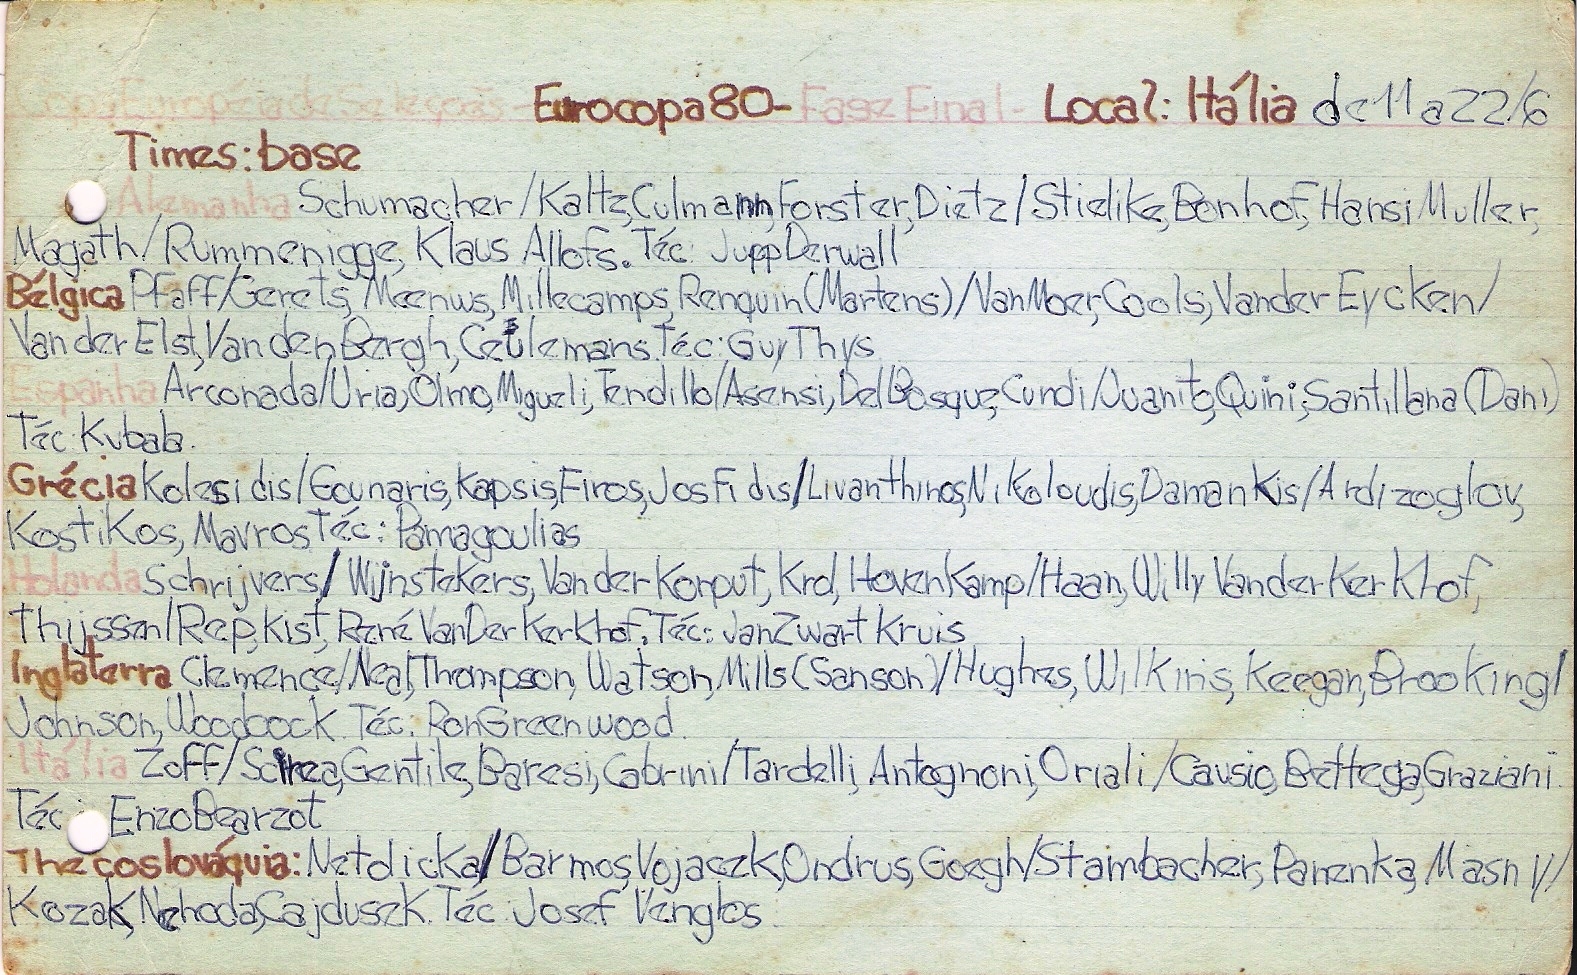 Copa Européia de Seleções - Eurocopa 80 - Fase Final - Local: Itália de 11 a 22/6
Times: base
Alemanha Schumacher / Kaltz, Culmann, Forster, Dietz / Stielike, Bonhof, Hansi Muller,
Magath / Rummenigge, Klaus Allofs. Téc: Jupp Derwall
Bélgica Pfaff / Gerets, Meenws, Millecamps, Renquin (Martens) / Van Moer, Cools, Vander Eycken /
Van der Elst, Van den Bergh, Ceulemans. Téc: Guy Thys
Espanha Arconada / Uria, Olmo, Migueli, Tendillo / Asensi, Del Bosque, Cundi / Juanito, Quini, Santillana (Dani)
Téc: Kubala.
Grécia Kolesidis / Gounaris, Kapsis, Firos, Josfidis / Livanthinos, Nikoloudis, Damankis / Ardizoglov,
Kostikos, Mavros Téc: Pamagoulias
Holanda Schrijvers / Wijnstekers, Van der Korput, Krol, Hovenkamp / Haan, Willy Van der Kerkhof,
Thijssen / Rep, Kist, René Van Der Kerkhof. Téc: Jan Zwartkruis
Inglaterra Clemence / Neal, Thompson, Watson, Mills (Sanson) / Hughes, Wilkins, Keegan, Brooking /
Johnson, Woodcock. Téc: Ron Greenwood.
Itália Zoff / Scirea, Gentile, Baresi, Cabrini / Tardelli, Antognoni, Oriali / Causio, Bettega, Graziani.
Téc: Enzo Bearzot
Thecoslováquia: Netolicka / Barmos, Vojaczk, Ondrus, Goegh / Stambacher, Panenka, Masny /
Kozak, Nehoda, Gajdusek. Téc: Josef Venglos